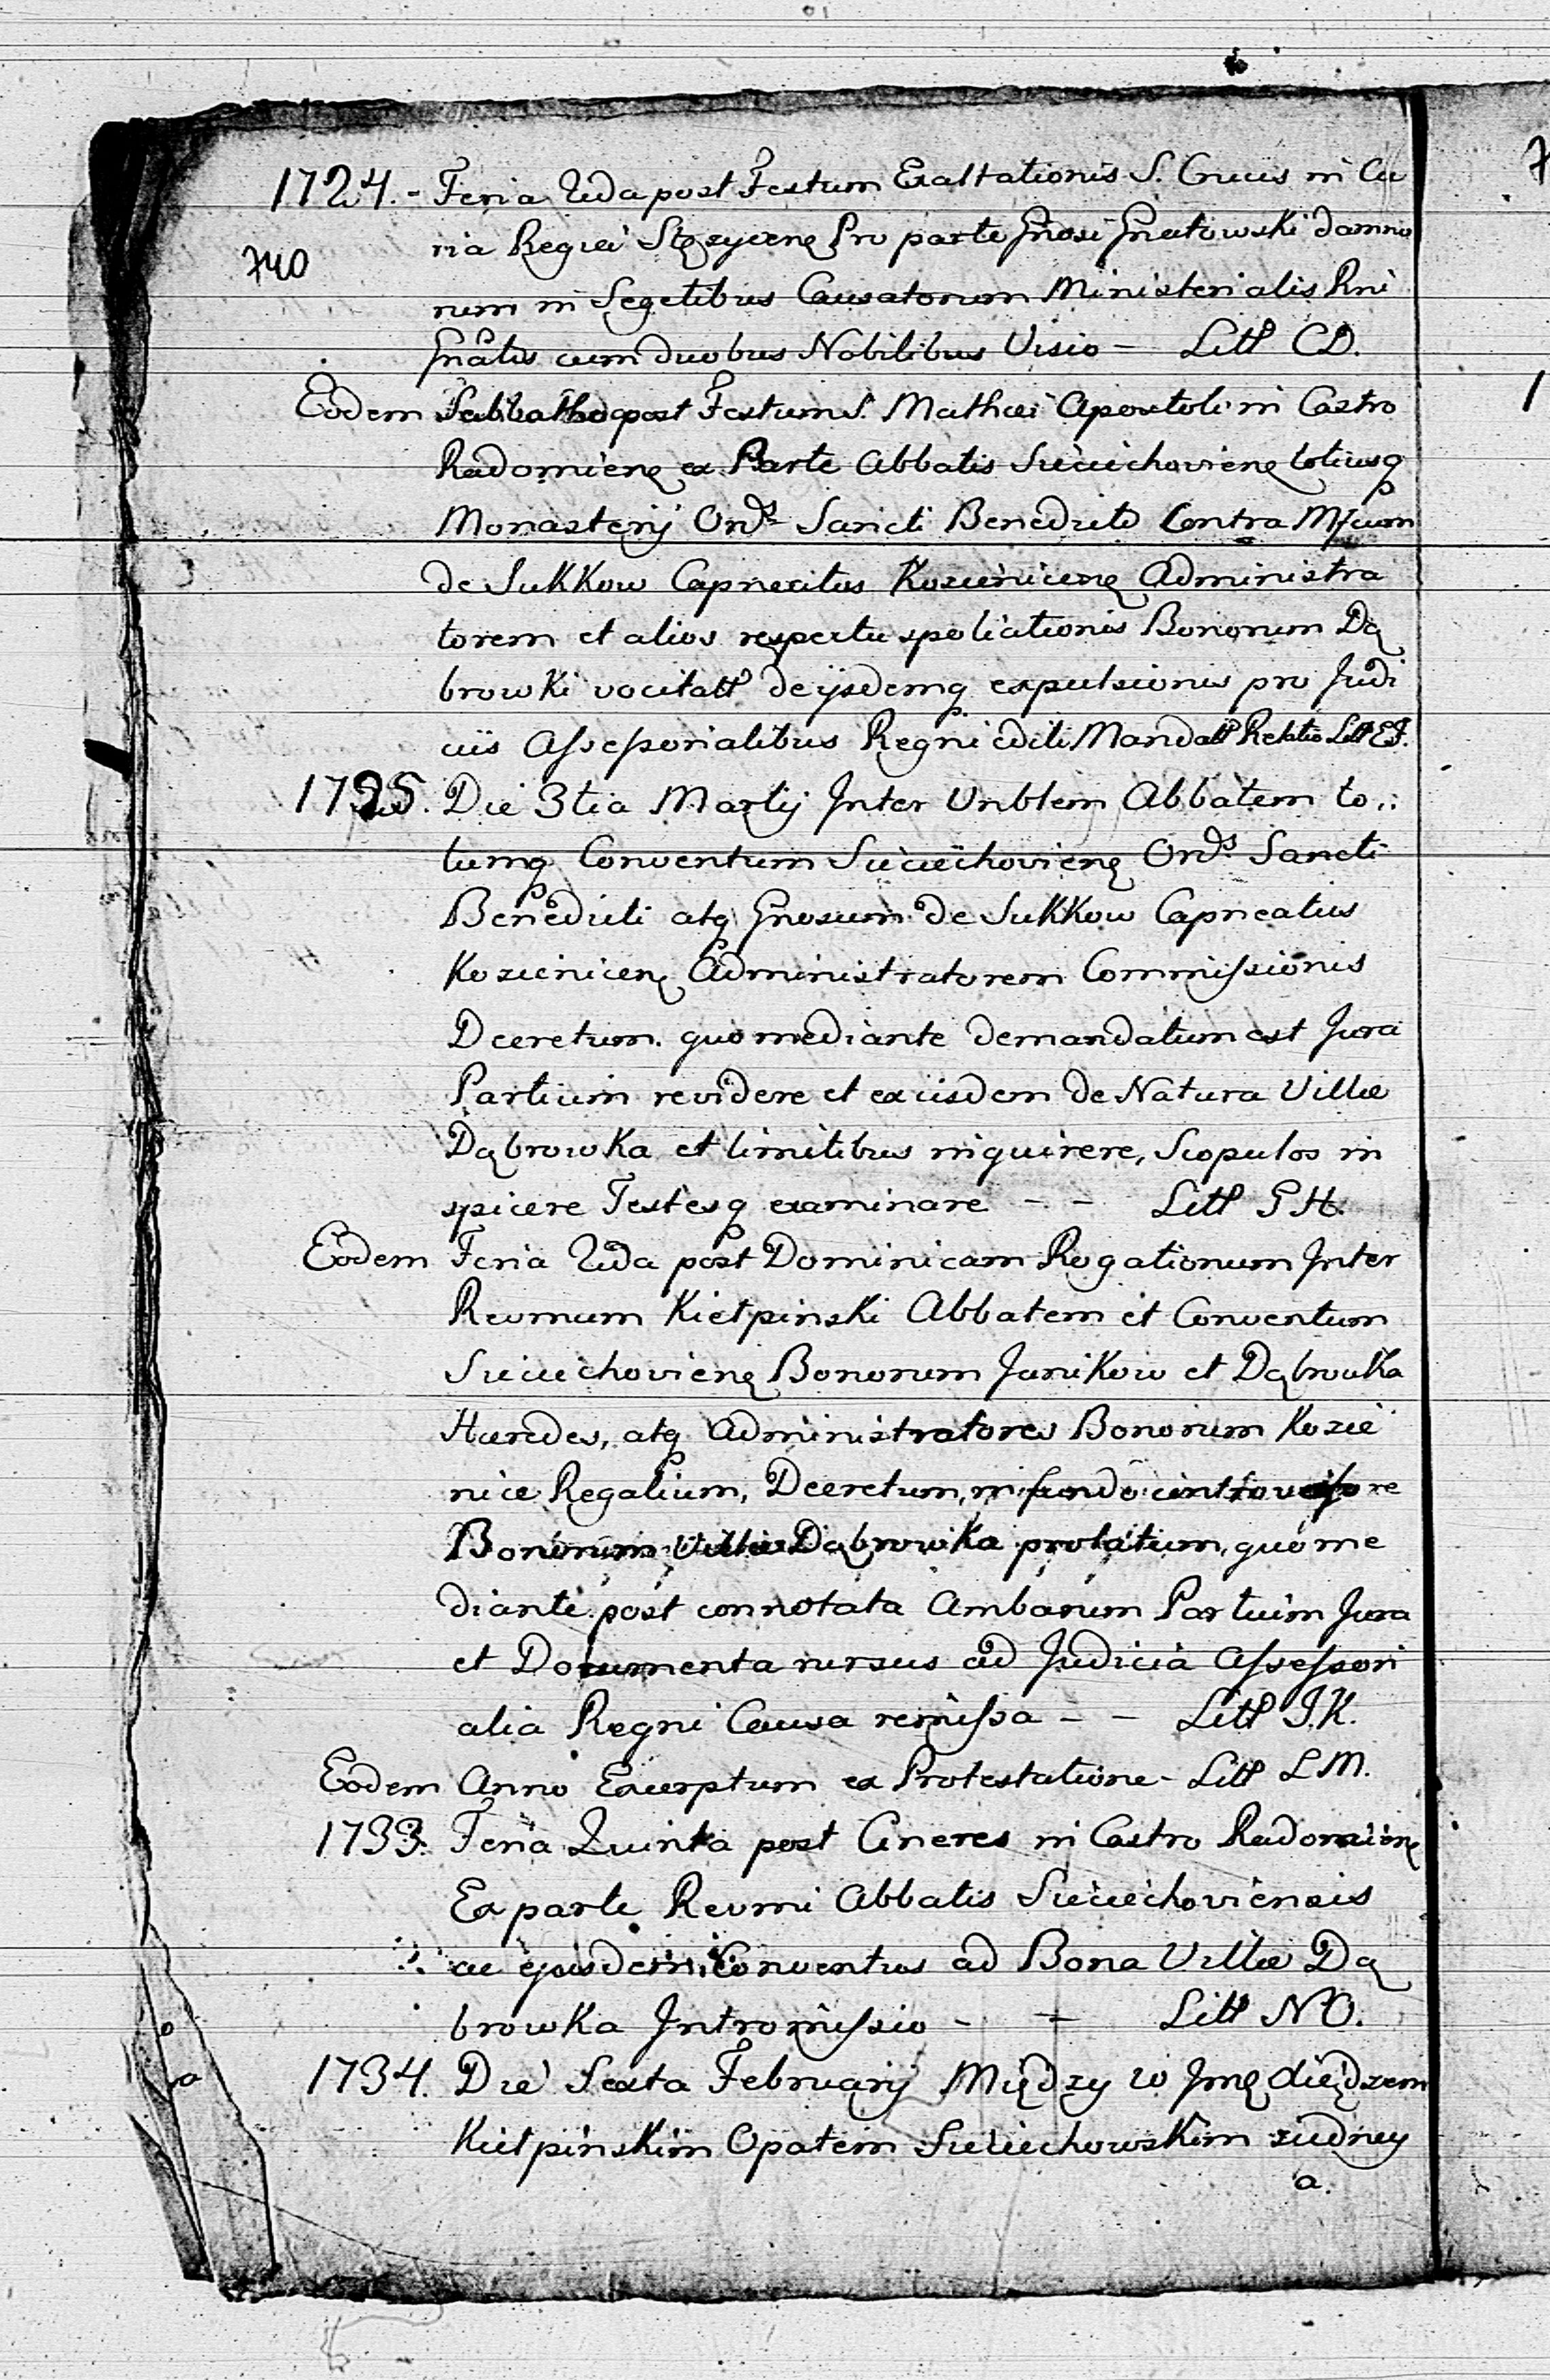 1724. - Feria IIda post Festum Exaltationis S. Crucis in Cu
ria Regia Stężycenę Pro parte Gnosi Gnatowski damno
740
rum in Segetibus Causatorum Ministerialis Rni
Gnalis cum duobus Nobilibus Visio - Litt CD.
Eodem Sabbatho post Festum S. Mathaei Apostoli in Castro
Radomienę ex Parte Abbatis Sieciechovienę totiusq
Monasterij Ords Sancti Benedicti Contra Mfcum
de Sukkow Capneatus Kozienicenę Administra
torem et alios respectu spoliationis Bonorum Dą
browki vocitatt de ijsdemq expulsionis pro Judi
ciis Assessorialibus Regni editi Mandatt Relatio Litt EF.
1725. Die 3tia Martij Inter Vnblem Abbatem to,,
tumq Conventum Sieciechovienę Ords Sancti
Benedicti atq Gnosum de Sukkow Capneatus
Kozienicenę Administratorem Commissionis
Decretum. quo mediante demandatum est Jura
Partium revidere et ex iisdem de Natura Villae
Dąbrowka et limitibus inquirere, Scopulos in
spicere Testesq examinare - - Litt GH.
Eodem Feria IIda post Dominicam Rogationum Inter
Revmum Kiełpinski Abbatem et Conventum
Sieciechovienę Bonorum Janikow et Dąbrowka
Haeredes, atq Administratores Bonorum Kozie
nice Regalium, Decretum, in fundo
Bonorum Villae Dąbrowka prolatum, quo me
diante post connotata Ambarum Partium Jura
et Documenta rursus ad Judicia Assessori
alia Regni Causa remissa - - Litt J.K.
Eodem Anno Excerptum ex Protestatione - Litt LM.
1733. Feria Quinta post Cineres in Castro Radomienę
Ex parte Revmi Abbatis Sieciechoviensis
ac ejusdem Conventus ad Bona Villae Dą
browka Intromissio - - Litt NO.
1734. Die Sexta February Między w Jmę Xiędzem
Kiełpinskim Opatem Sieciechowskim ziedney
a.